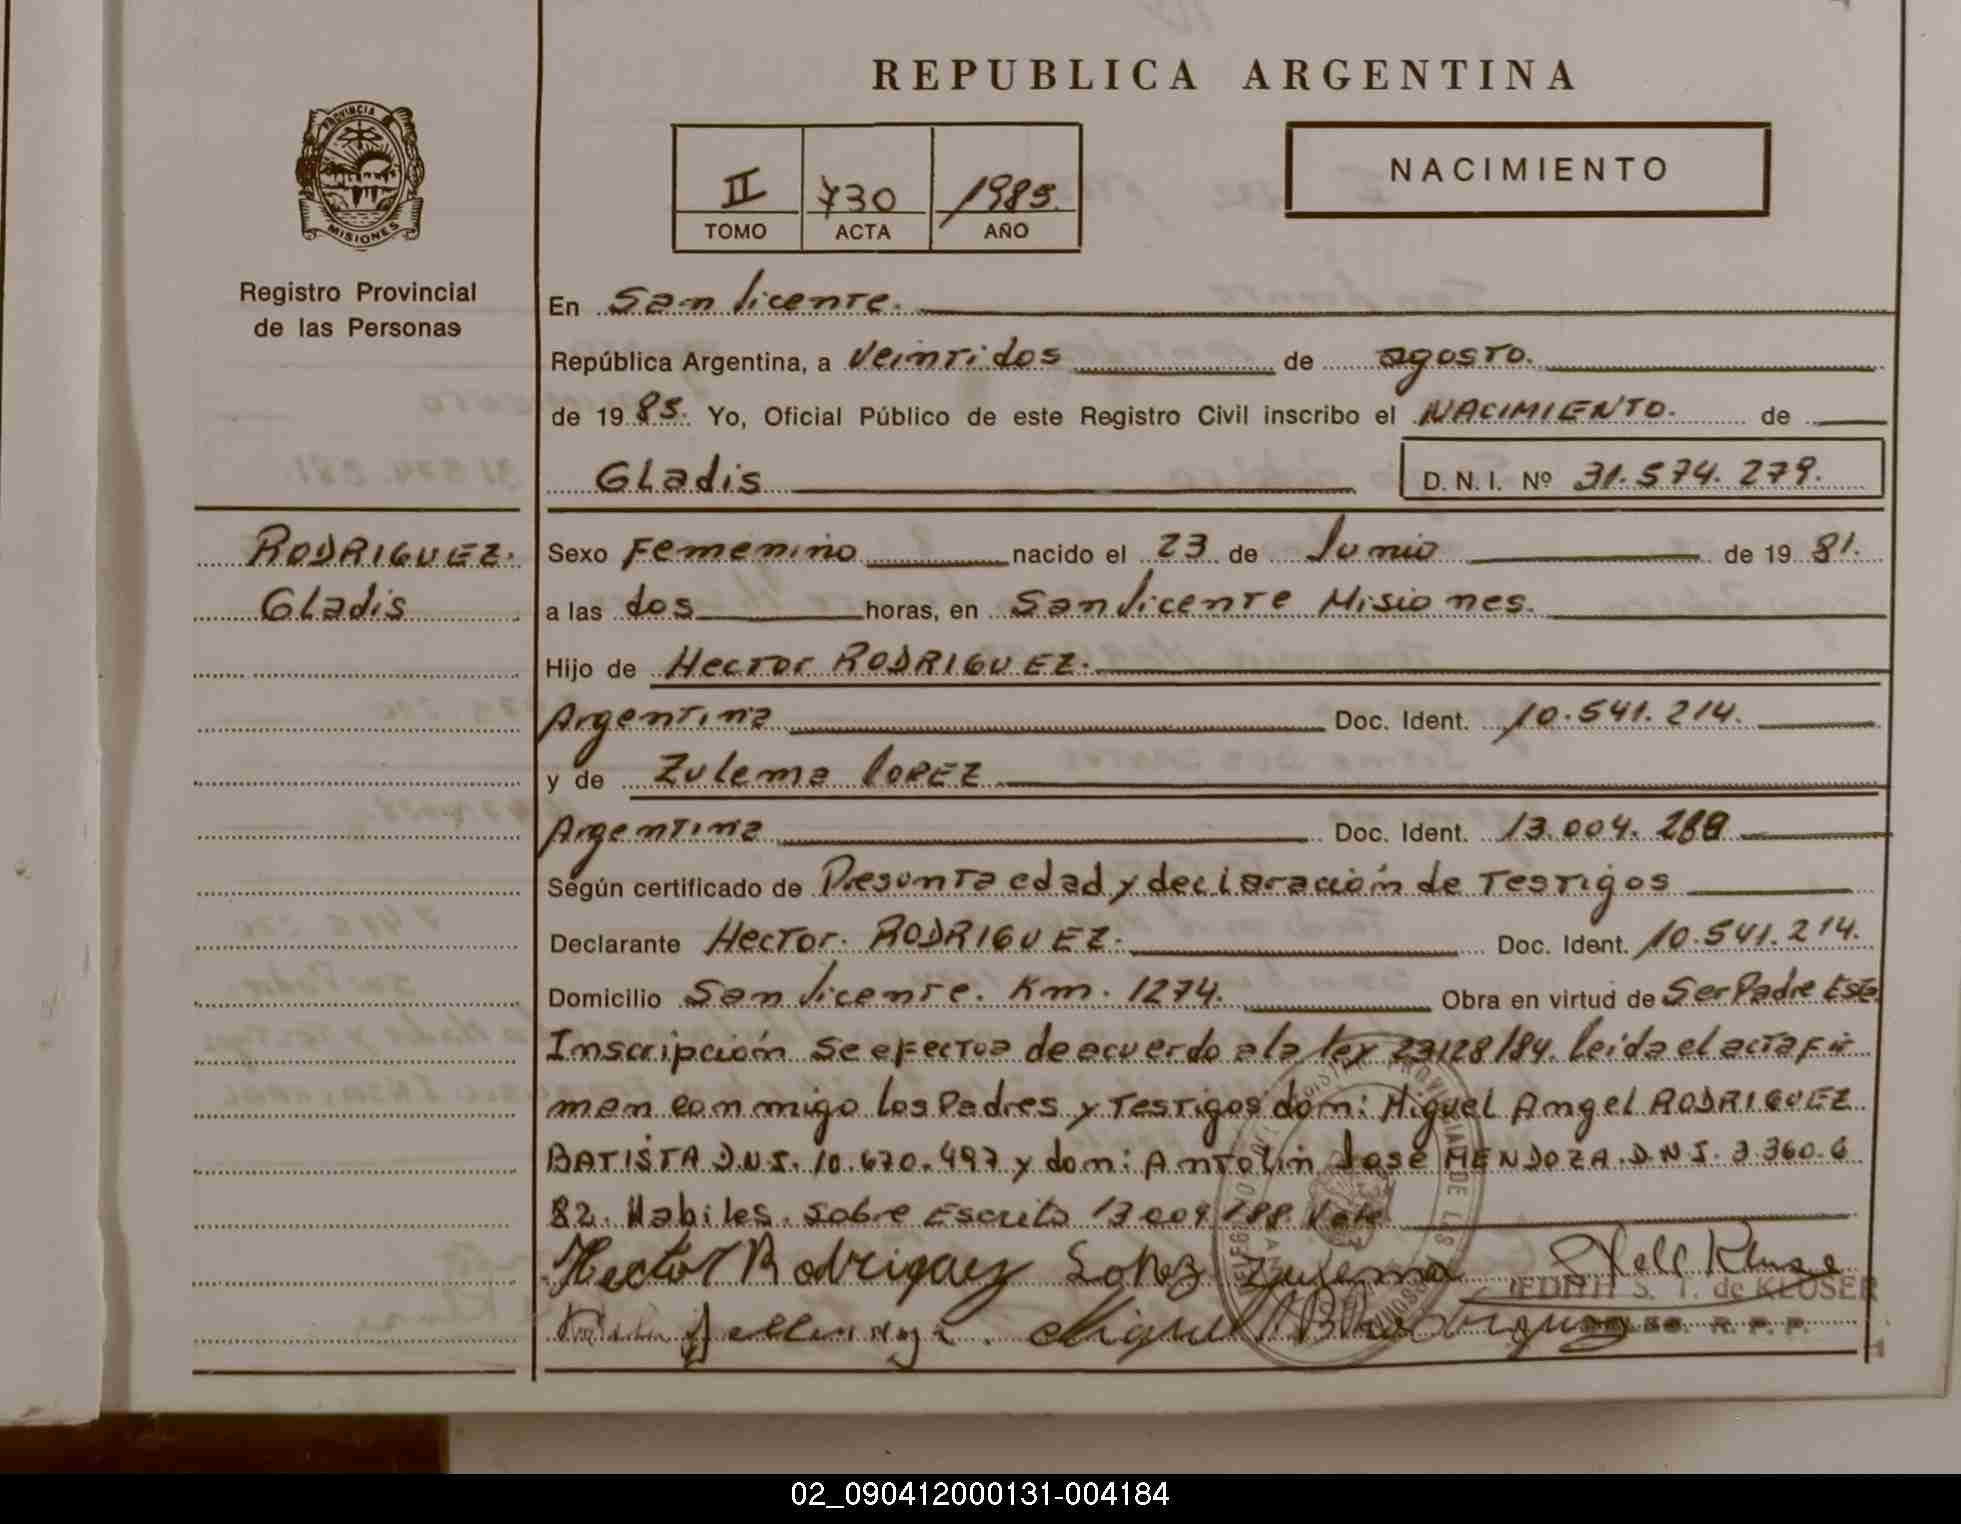 REPUBLICA ARGENTINA
PROVINCIA
MISIONES
II 730 1985.
TOMO ACTA AÑO
NACIMIENTO
Registro Provincial
de las Personas
En San Vicente.
República Argentina, a Veintidos de agosto.
de 19 85. Yo, Oficial Público de este Registro Civil inscribo el NACIMIENTO. de
Gladis D. N. I. Nº 31.574.279.
RODRIGUEZ.
Gladis
Sexo Femenino nacido el 23 de Junio de 19 81.
a las dos horas, en San Vicente Misiones.
Hijo de Hector RODRIGUEZ.
Argentina Doc. Ident. 10.541.214.
y de Zulema LOPEZ
Argentina Doc. Ident. 13.004.
Según certificado de Presunta edad y declaración de Testigos
Declarante Hector. RODRIGUEZ. Doc. Ident. 10.541.214.
Domicilio San Vicente. Km. 1274. Obra en virtud de Ser Padre Esta
Inscripción se efectua de acuerdo a la ley 23128/84. leida el acta fir
man conmigo los Padres y Testigos don: Miguel Angel RODRIGUEZ
BATISTA D.N.I. 10.670.497 y don: Antolin Jose MENDOZA. D.N.I. 3.360.6
82. Habiles. Sobre Escrito 13.004.188 Vale
Hector Rodriguez Lopez Zulema
EDITH S. T. de KLUSER
Miguel A B Rodriguez R. P. P.
02_090412000131-004184